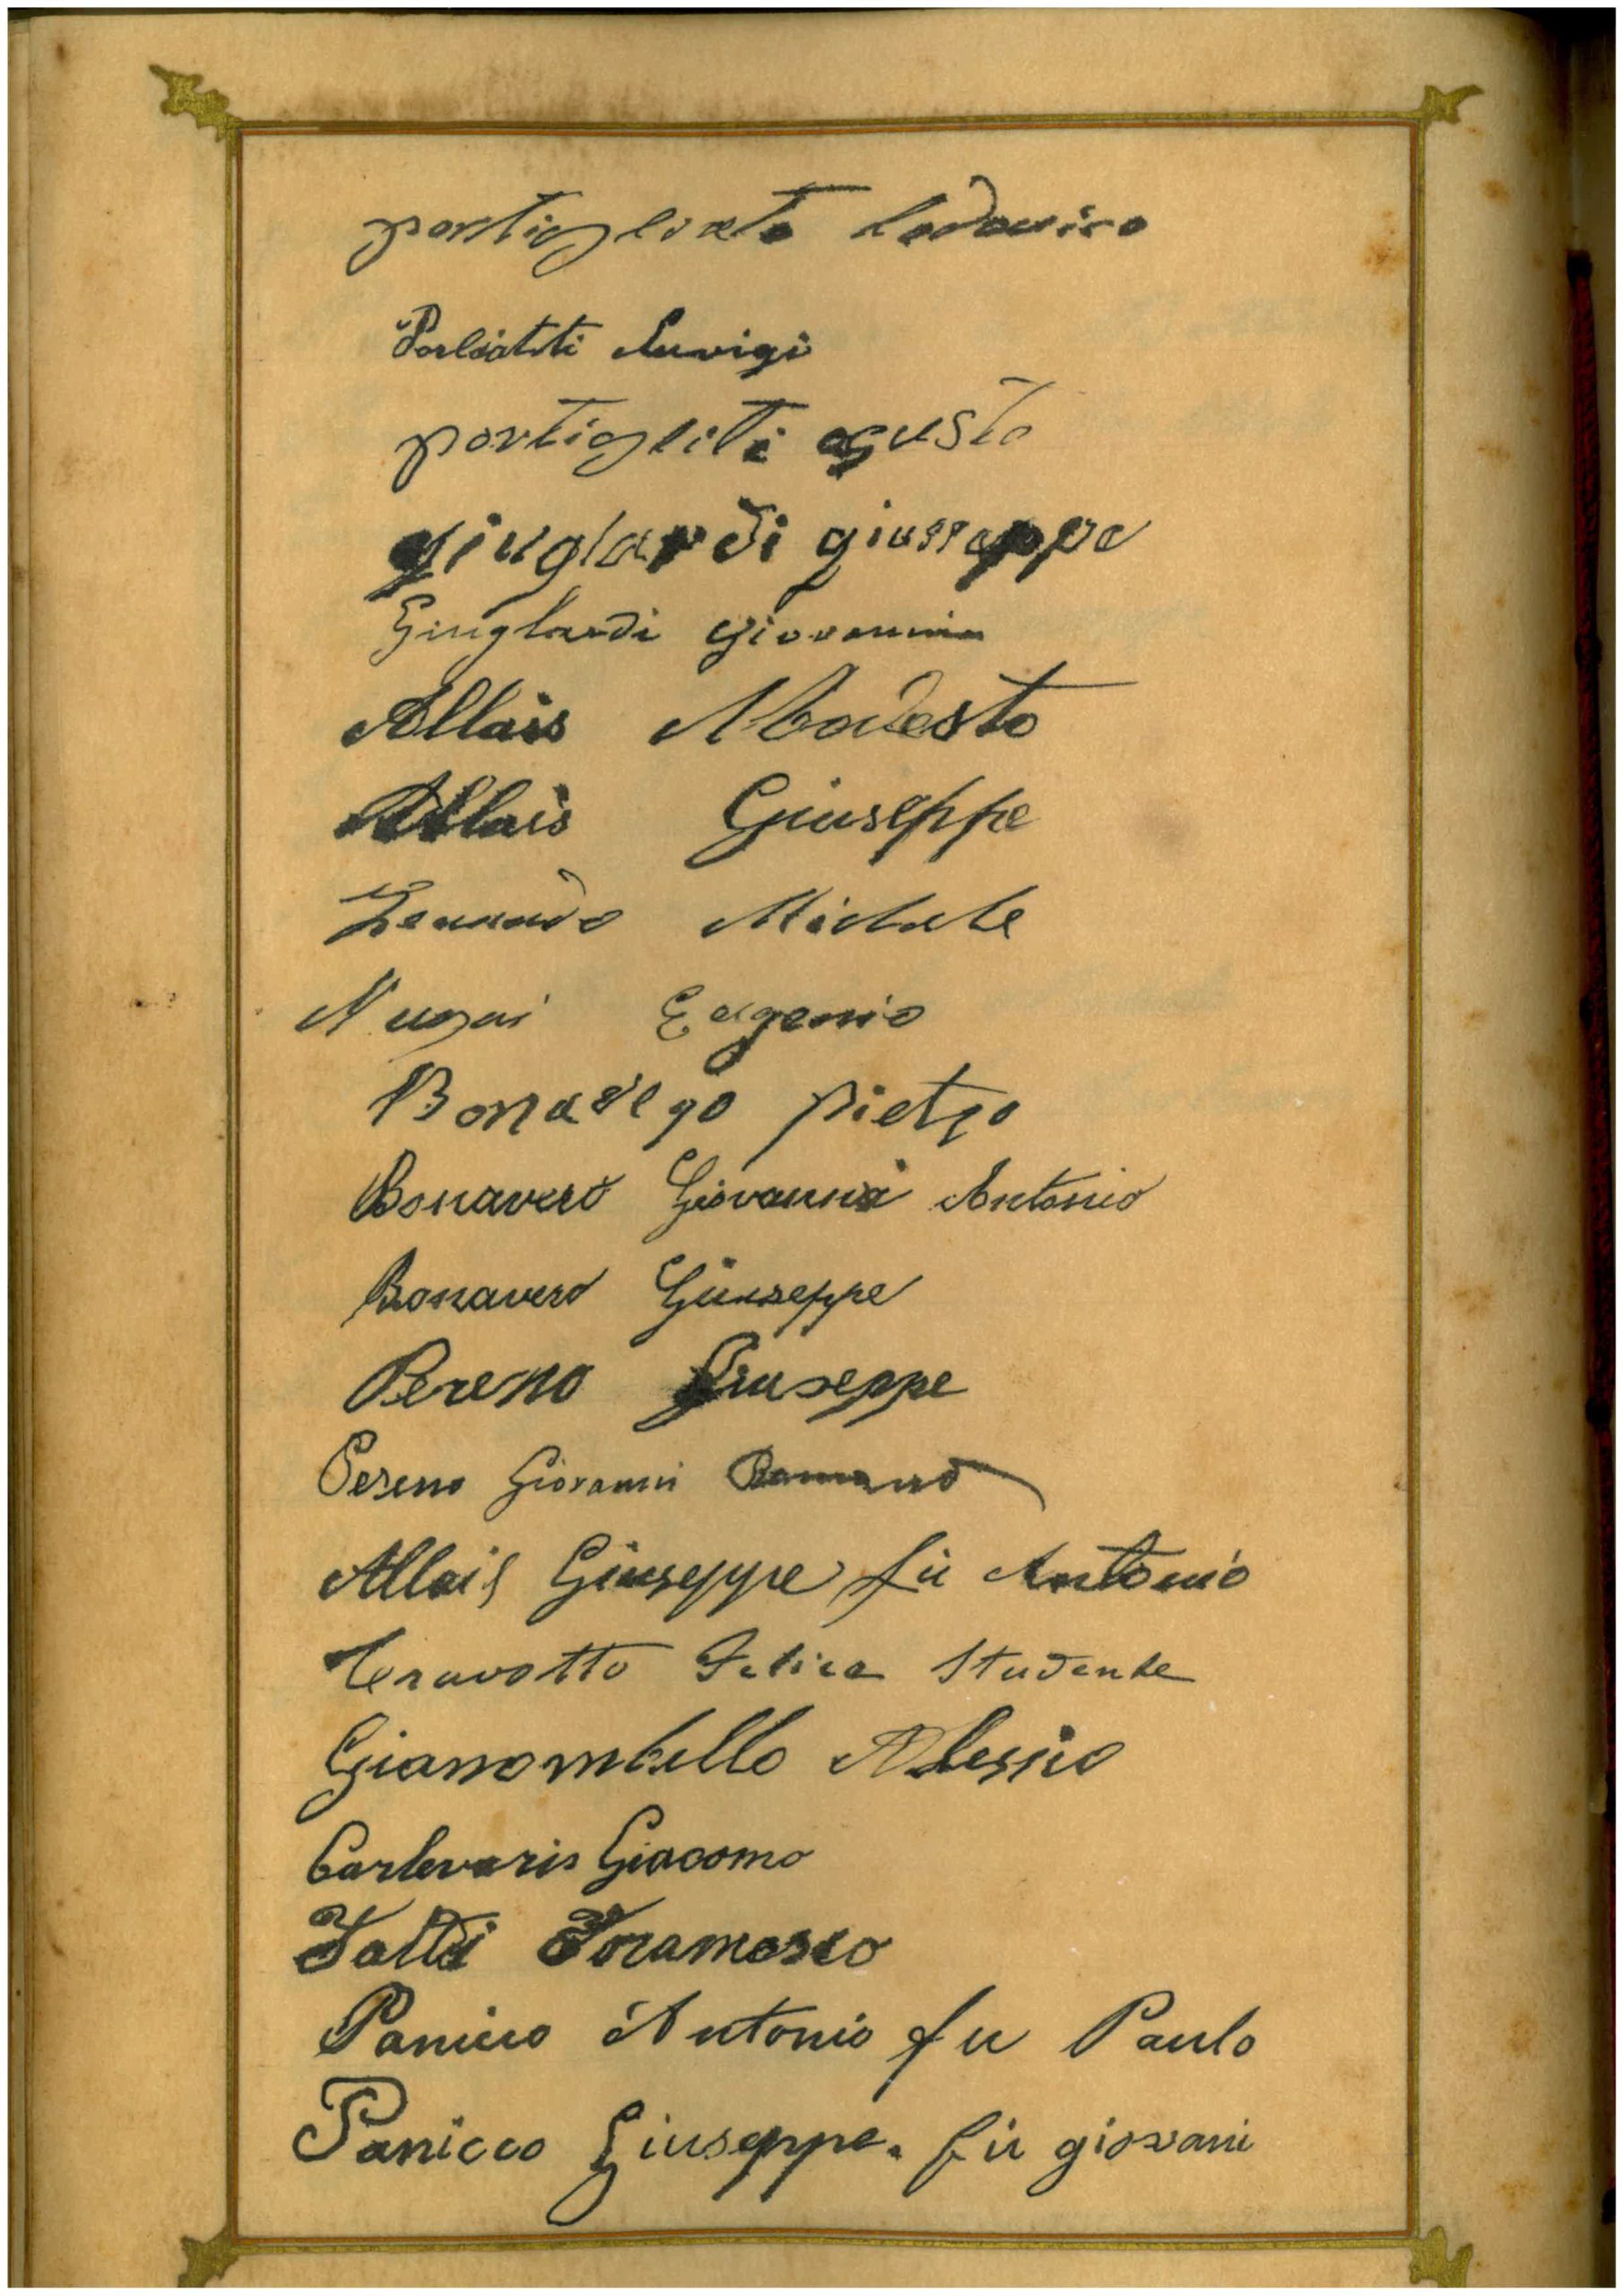 portigliati lodovico
Luvigi
portigliti agusto
giuglardi giuseppe
Giuglardi giovanni
Allais Modesto
Allais Giuseppe
Michele
Eugenio
Bonavero pietro
Bonavero Giovanni Antonio
Bonavero Giuseppe
Pereno Giuseppe
Pereno Giovanni
Allais Giuseppe fù Antonio
Cravotto Felice Studente
Gianombello Alessio
Carlevaris Giacomo
Panicco Antonio fu Paulo
Panicco Giuseppe. fù giovani